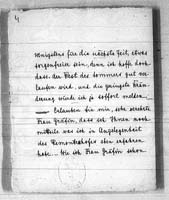 4
wenigstens für die nächste Zeit, etwas
sorgenfreier sein, denn ich hoffe doch
dass der Rest des Sommers gut ver-
laufen wird, und die geringste Ände-
rung würde ich ja sofort melden.
Erlauben Sie mir, sehr verehrte
Frau Gräfin, dass ich Ihnen noch
mitteile was ich in Angelegenheit
des Remontenhofes eben erfahren
habe. Wie ich Frau Gräfin schon